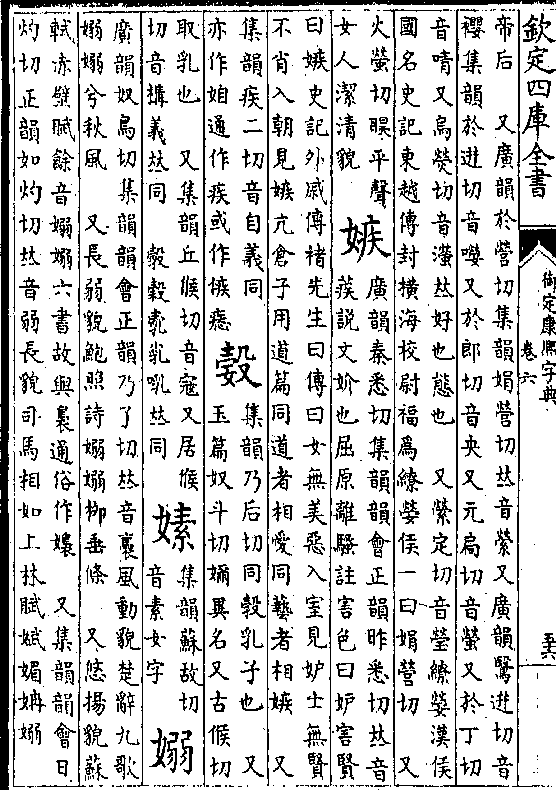 欽定四庫全書
御定康熙字典
卷六
帝后　又廣韻於營切集韻娟營切𠀤音縈又廣韻鷖迸切音
褮集韻於迸切音嚶又於郎切音央又元扃切音螢又於丁切
音嚀又烏熒切音瀠𠀤好也態也　又縈定切音瑩繚嫈漢侯
國名史記東越傳封橫海校尉福爲繚嫈侯一曰娟營切　又
火螢切睽平聲
女人潔清貌　嫉　廣韻秦悉切集韻韻會正韻昨悉切𠀤音
蒺說文妎也屈原離騷註害色曰妒害賢
曰嫉史記外戚傳褚先生曰傳曰女無美惡入室見妒士無賢
不肖入朝見嫉亢倉子用道篇同道者相愛同藝者相嫉　又
集韻疾二切音自義同
亦作㛗通作疾或作㑵㾊　㝅　集韻乃后切同㝅乳子也　又
玉篇奴斗切嬭異名又古候切
取乳也　又集韻丘候切音寇又居候
切音搆義𠀤同　嫊　集韻蘇故切
音素女字　嫋
廣韻奴鳥切集韻韻會正韻乃了切𠀤音褭風動貌楚辭九歌
嫋嫋兮秋風　又長弱貌鮑照詩嫋嫋柳垂條　又悠揚貌蘇
軾赤壁賦餘音嫋嫋六書故與褭通俗作嬝　又集韻韻會日
灼切正韻如灼切𠀤音弱長貌司馬相如上林賦娬媚㛦嫋